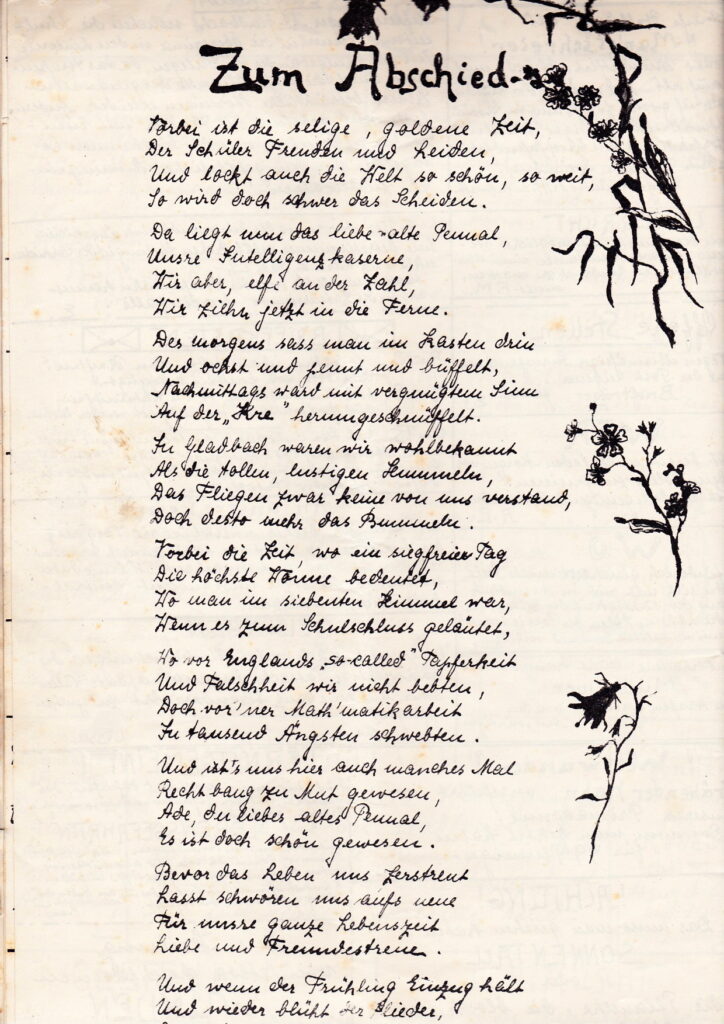 Zum Abschied.
Vorbei ist die selige, goldene Zeit,
Der Schüler Freuden und Leiden,
Und lockt auch die Welt so schön, so weit,
So wird doch schwer das Scheiden.
Da liegt nun das liebe alte Pennal,
Unsre Intelligenzkaserne,
Wir aber, elfe an der Zahl,
Wir ziehn jetzt in die Ferne.
Des morgens sass man im Kasten drin
Und ochst und pennt und büffelt,
Nachmittags ward mit vergnügtem Sinn
Auf der „Kre" herumgeschnüffelt.
In Gladbach waren wir wohlbekannt
Als die tollen, lustigen Hummeln,
Das Fliegen zwar keine von uns verstand,
Doch desto mehr das Bummeln.
Vorbei die Zeit, wo ein siegfreier Tag
Die höchste Wonne bedeutet,
Wo man im siebenten Himmel war,
Wenn es zum Schulschluss geläutet,
Wo vor Englands „so-called" Tapferkeit
Und Falschheit wir nicht bebten,
Doch vor 'ner Math'matikarbeit
In tausend Ängsten schwebten.
Und ist's uns hier auch manches Mal
Recht bang zu Mut gewesen,
Ade, du liebes altes Pennal,
Es ist doch schön gewesen.
Bevor das Leben uns zerstreut
Lasst schwören uns aufs neue
Für unsre ganze Lebenszeit
Liebe und Freundestreue.
Und wenn der Frühling Einzug hält
Und wieder blüht der Flieder,